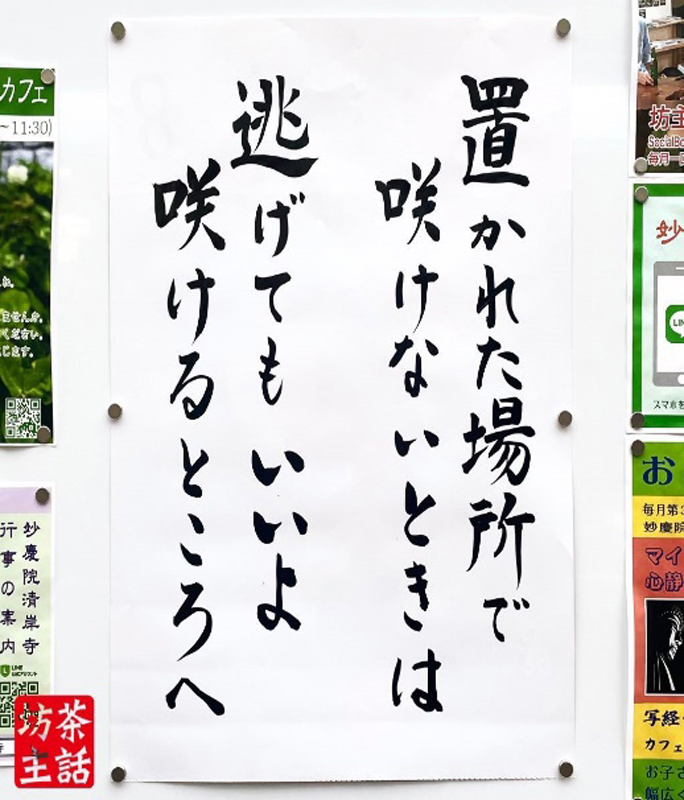 置かれた場所で
咲けないときは
逃げてもいいよ
咲けるところへ
カフェ
~11:30)
妙慶院清岸寺
行事の案内
LINE
坊主
茶話
坊主
毎月一回
妙
スマホを
お
毎月第3
妙慶院
マイ
心静
写経
カフェ
お子さ
幅広く